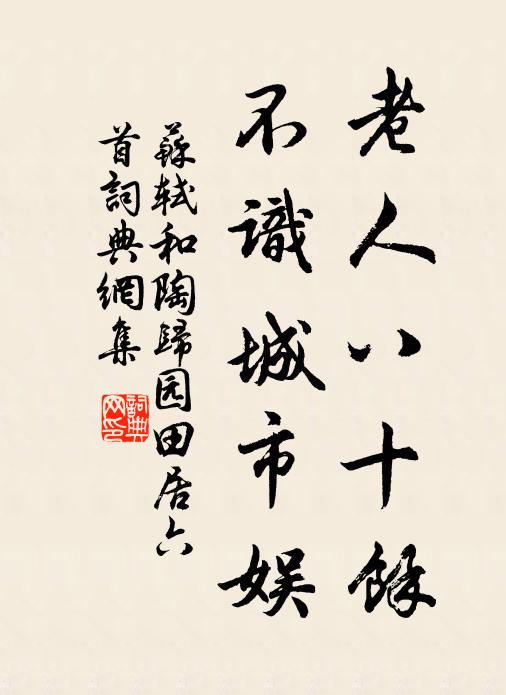 老人八十餘
不識城市娱
蘇軾和陶歸园田居六
首詞典網集
詞典
网印